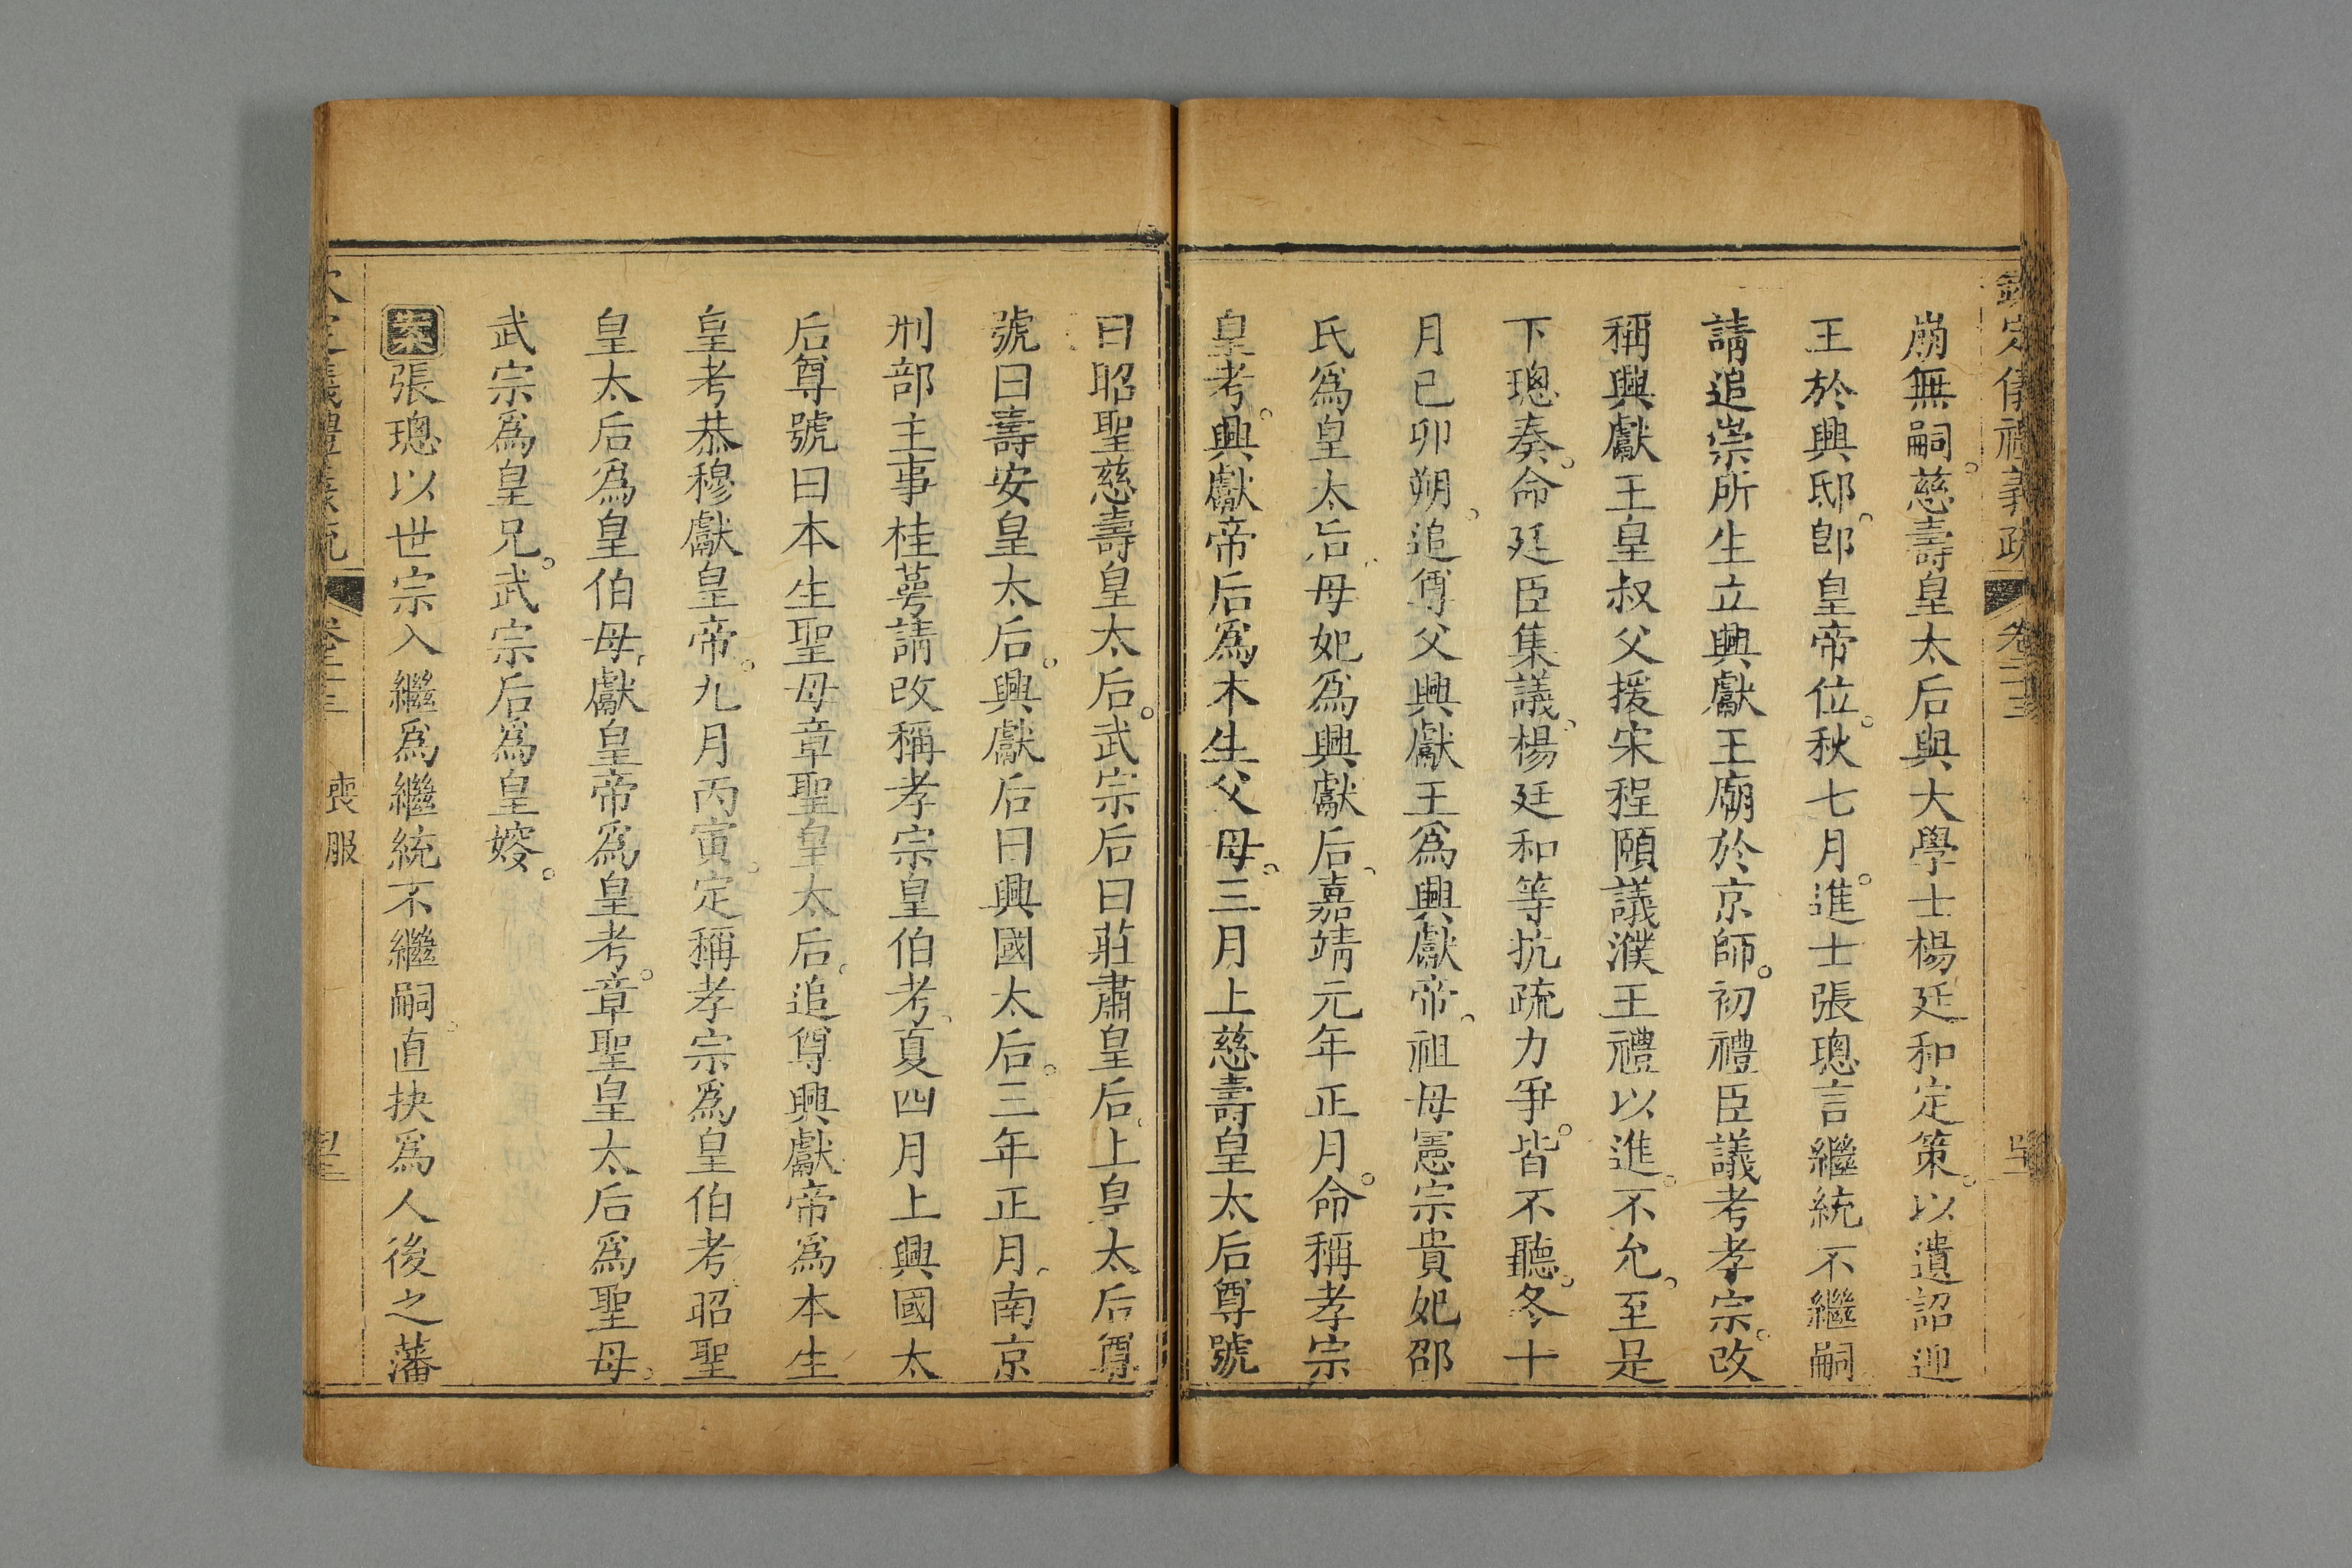 欽定儀禮義疏 卷二十三
崩無嗣。慈壽皇太后與大學士楊廷和定策。以遺詔迎
王於興邸。卽皇帝位。秋七月。進士張璁言繼統不繼嗣
請追崇所生立興獻王廟於京師。初禮臣議考孝宗。改
稱興獻王皇叔父援宋程頤議濮王禮以進。不允。至是
下璁奏。命廷臣集議、楊廷和等抗疏力爭。皆不聽。冬十
月己卯朔。追尊父興獻王爲興獻帝、祖母憲宗貴妃邵
氏爲皇太后、母妃爲興獻后、嘉靖元年正月。命稱孝宗
皇考。興獻帝后爲本生父母。三月上慈壽皇太后尊號
曰昭聖慈壽皇太后。武宗后曰莊肅皇后、上皇太后尊
號曰壽安皇太后。興獻后曰興國太后。三年正月、南京
刑部主事桂萼請改稱孝宗皇伯考、夏四月上興國太
后尊號曰本生聖母章聖皇太后、追尊興獻帝爲本生
皇考恭穆獻皇帝。九月丙寅。定稱孝宗爲皇伯考昭聖
皇太后爲皇伯母、獻皇帝爲皇考。章聖皇太后爲聖母、
武宗爲皇兄。武宗后爲皇嫂。
案張璁以世宗入繼爲繼統不繼嗣。直抉爲人後之藩
喪服